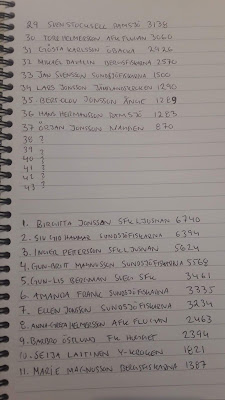 29 SVEN STOCKSELL RAMSJÖ 3138
30 TORE HELMERSSON AFK FLUVAN 3060
31 GÖSTA KARLSSON ÖBACKA 2926
32 MIKAEL DAHLIN BERGEFISKARNA 2570
33 JAN SVENSSON SUNDSJÖFISKARNA 1500
34 LARS JONSSON 1290
35 JONSSON ÅNGE 1289
36 HANS HERMANSSON RAMSJÖ 1283
37 ÖRJAN JONSSON 870
38 ?
39 ?
40 ?
41 ?
42 ?
43 ?
1. BIRGITTA JONSSON SFK LJUSNAN 6740
2. SIV HAMMAR SUNDSJÖFISKARNA 6394
3. INGER PETERSSON SFK LJUSNAN 5624
4. GUN-BRITT MAGNUSSON SUNDSJÖFISKARNA 5568
5. GUN-LIS BERGMAN SFK 3461
6. AMANDA FRANK SUNDSJÖFISKARNA 3335
7. ELLEN JONSSON SUNDSJÖFISKARNA 3234
8. ANNA-GRETA HELMERSSON AFK FLUVAN 2463
9. BARBRO ÖSTLUND FK 2394
10. SEIJA LAITINEN Y-KROKEN 1821
11. MARIE MAGNUSSON BERGEFISKARNA 1387